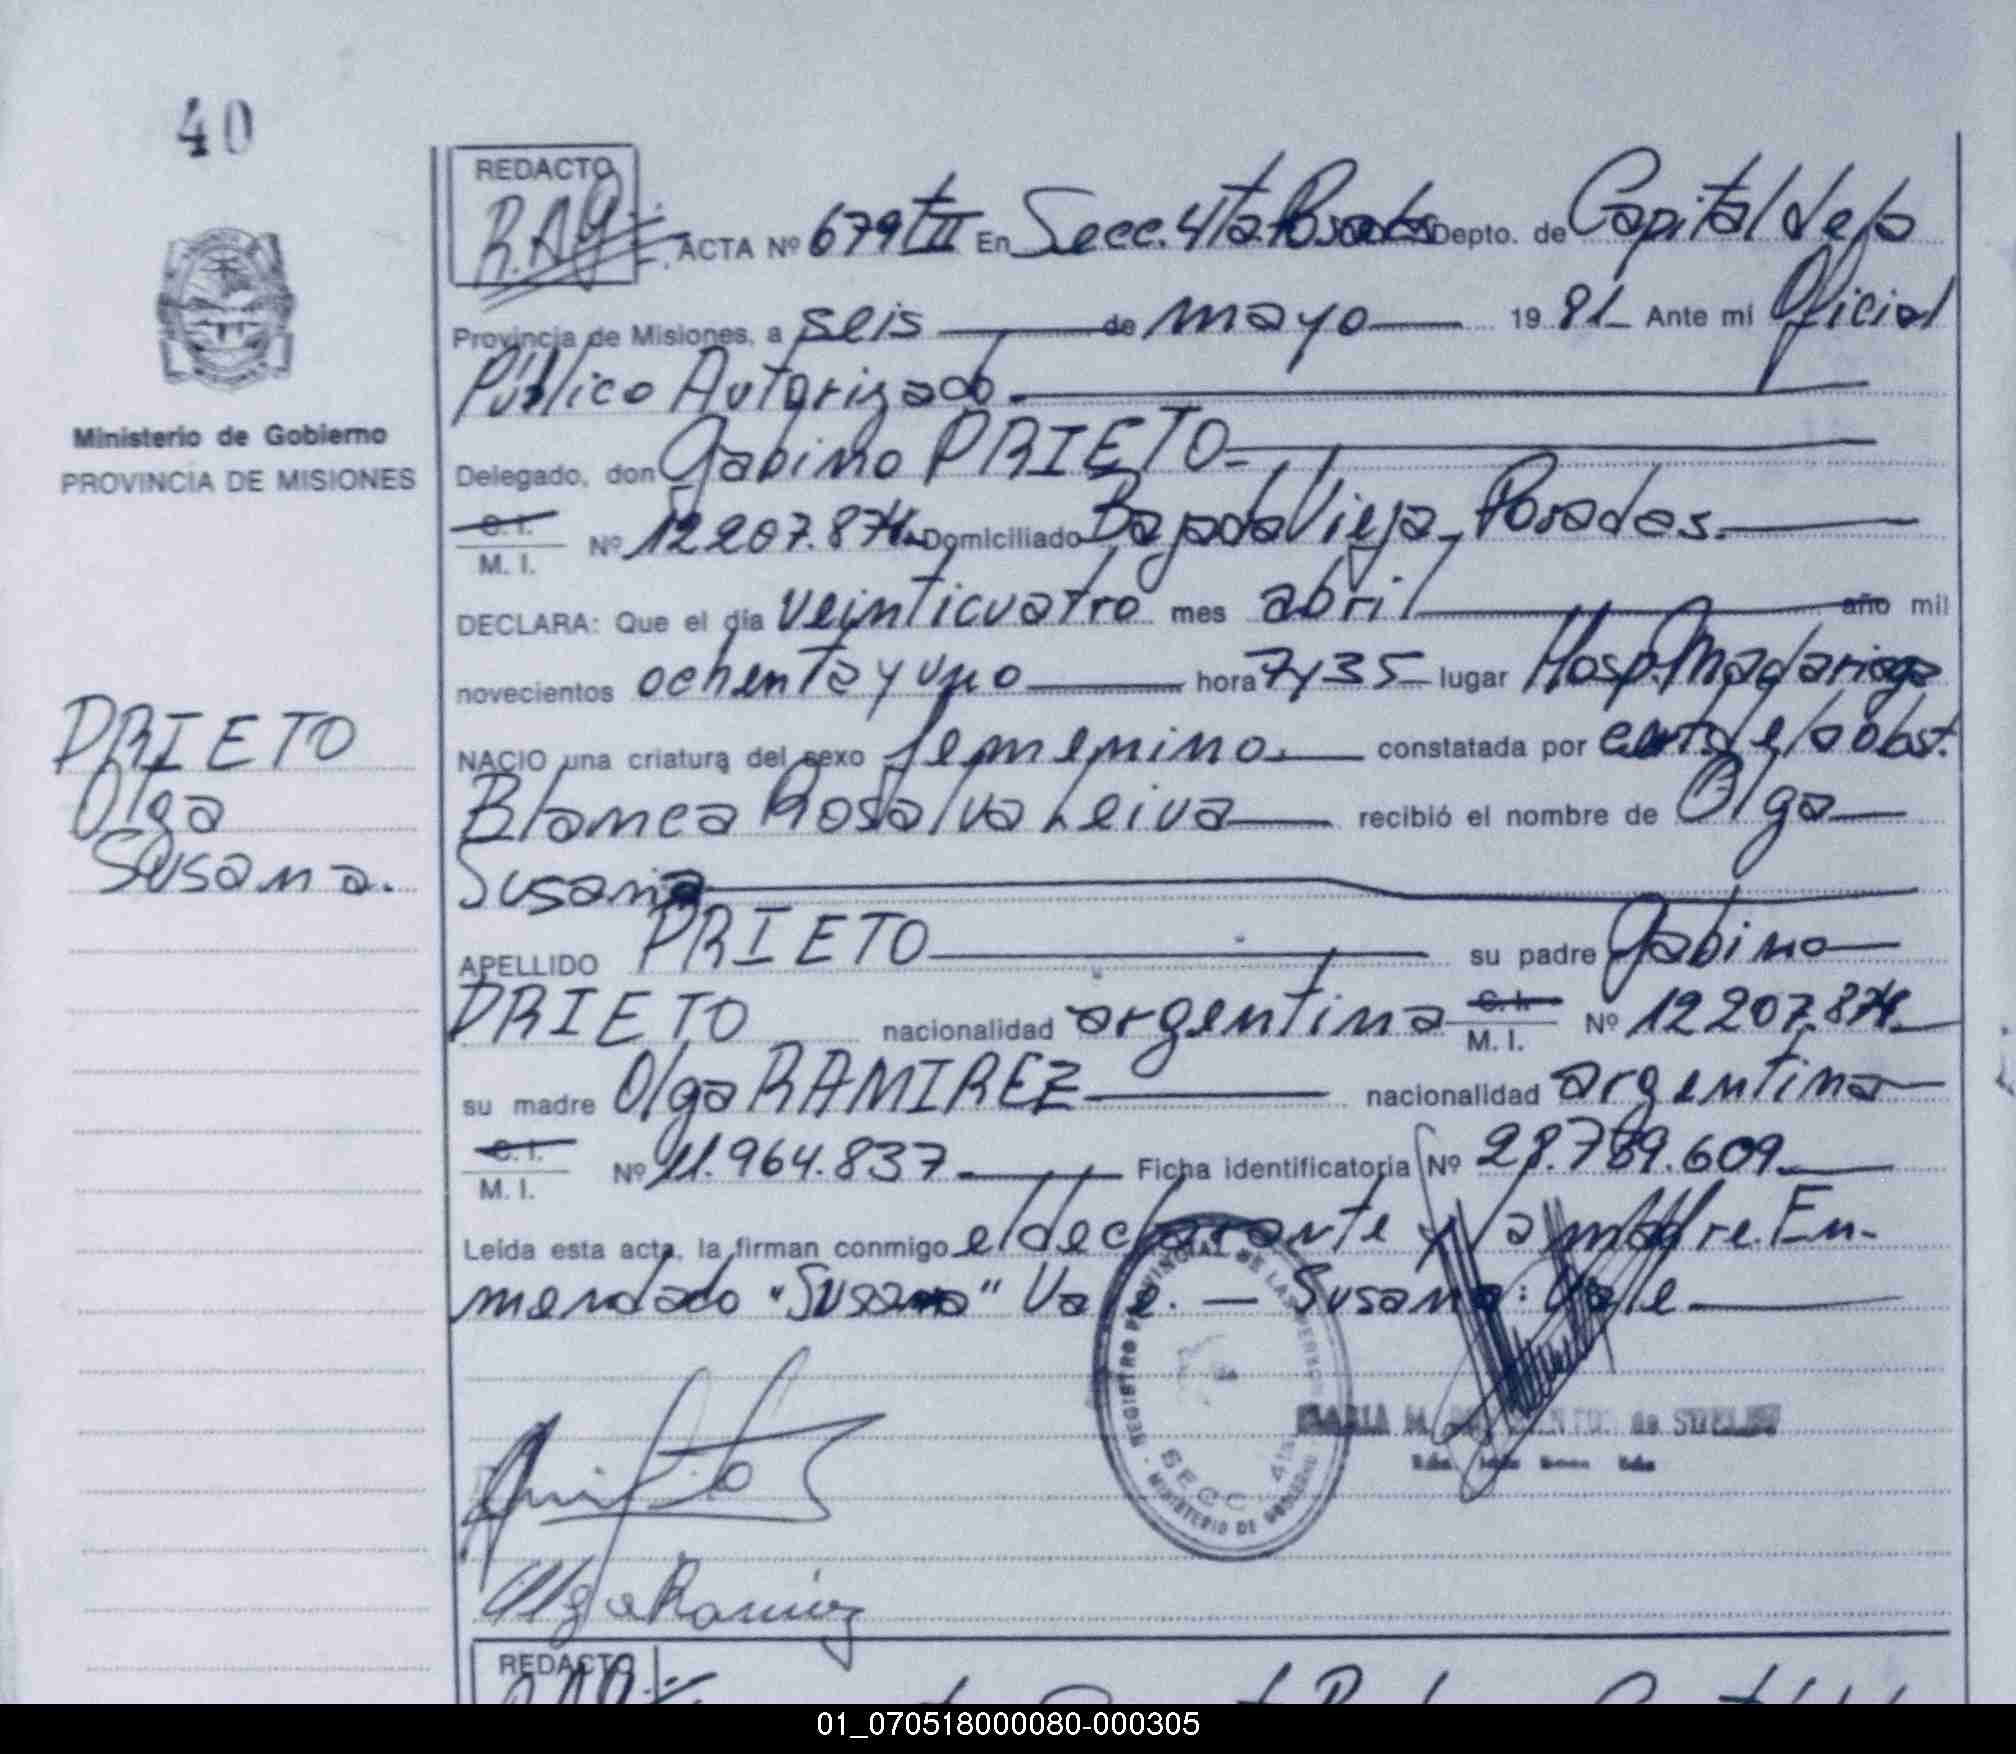 40
REDACTO
R.A.G.
ACTA Nº 679 tII En Secc. 4ta. Posadas Depto. de Capital de la
Provincia de Misiones, a seis de mayo 1981 Ante mi Oficial
Público Autorizado.
Ministerio de Gobierno
PROVINCIA DE MISIONES
Delegado, don Gabino PRIETO
C. I. M. I. Nº 12.207.874 Domiciliado Bajada Vieja - Posadas.
DECLARA: Que el día veinticuatro mes abril año mil
novecientos ochenta y uno hora 7y35 lugar Hosp. Madariaga
NACIO una criatura del sexo femenino. constatada por cert de la obst.
Blanca Rosalva Leiva recibió el nombre de Olga
Susana
PRIETO
Olga
Susana.
APELLIDO PRIETO su padre Gabino
PRIETO nacionalidad argentina C. I. M. I. Nº 12.207.874
su madre Olga RAMIREZ nacionalidad argentina
C. I. M. I. Nº 11.964.837 Ficha identificatoria Nº 28.789.609
Leída esta acta, la firman conmigo el declarante y la madre. En-
mendado "Susana" Vale. — Susana: Vale
REGISTRO PROVINCIAL DE LAS PERSONAS
SECC. 4ta
MINISTERIO DE GOBIERNO
MARIA
de
Olga Ramirez
REDACTO
01_070518000080-000305